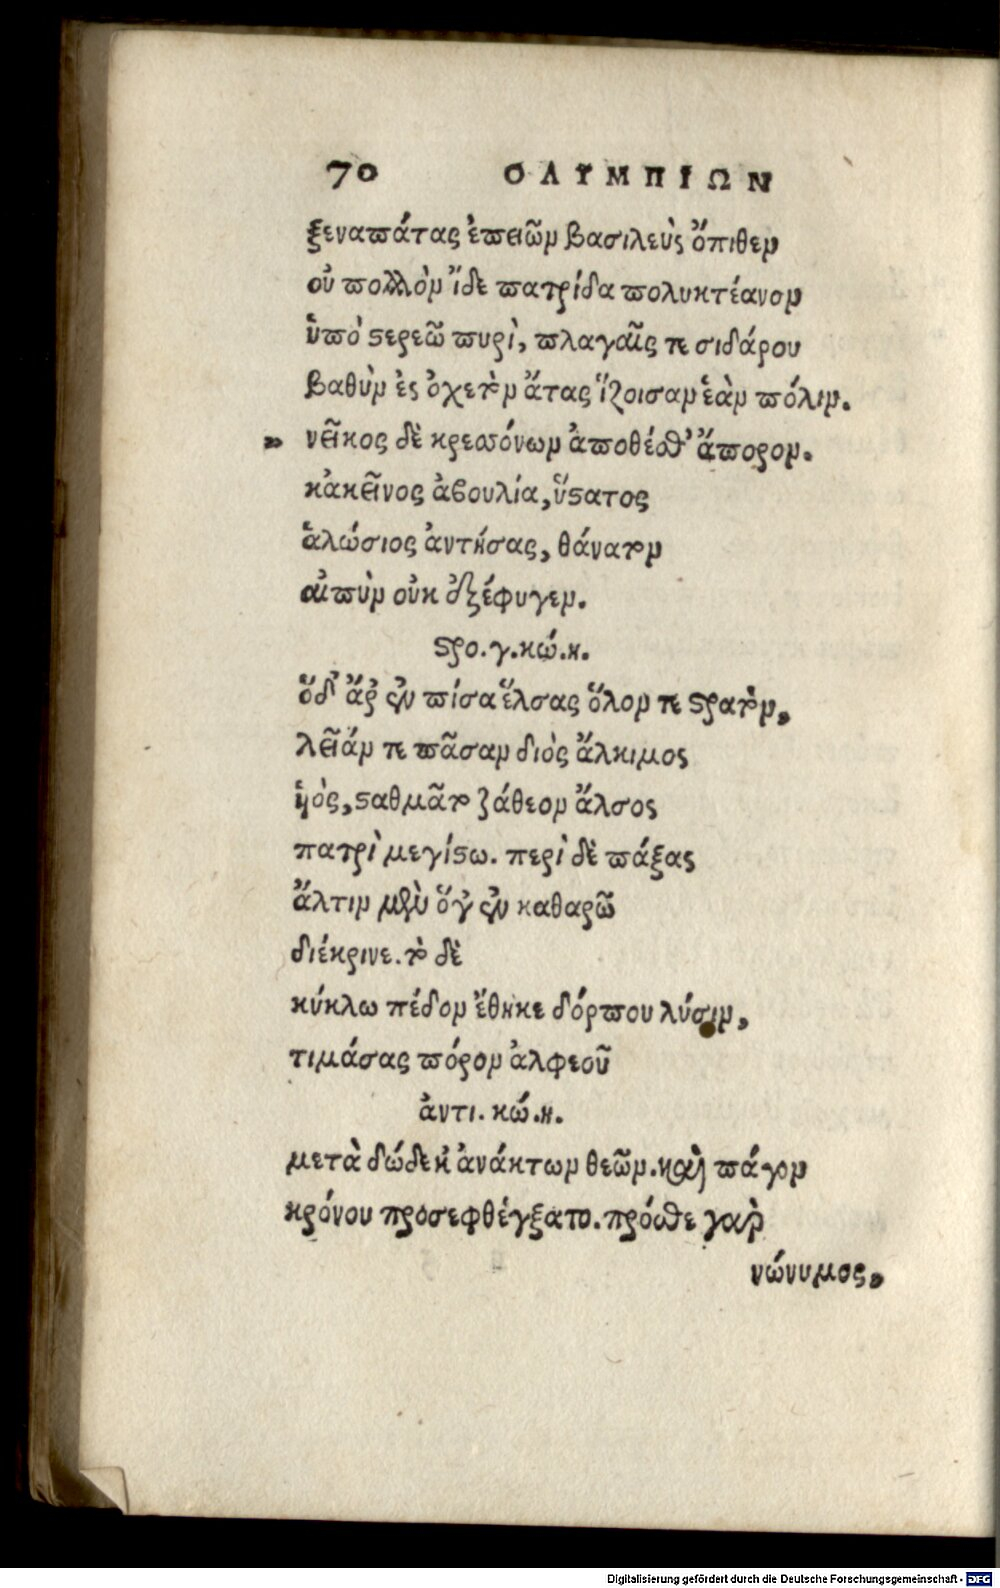 70 ΟΛΥΜΠΙΩΝ
ξεναπάτας ἐπειῶν βασιλεὺς ὄπιθεν
οὐ πολλὸν ἴδε πατρίδα πολυκτέανον
ὑπὸ στερεῶ πυρὶ, πλαγαῖς τε σιδάρου
βαθὺν ἐς ὀχετὸν ἄτας ἵζοισαν ἑὰν πόλιν.
» νεῖκος δὲ κρεσσόνων ἀποθέσθ' ἄπορον.
κἀκεῖνος ἀβουλία, ὕστατος
ἁλώσιος ἀντήσας, θάνατον
αἰπὺν οὐκ ἐξέφυγεν.
στρο. γ. κώ. κ.
ὅδ' ἄρ' ἐν πίσα ἔλσας ὅλον τε στρατὸν,
λείαν τε πᾶσαν διὸς ἄλκιμος
ἡὸς, σταθμᾶτο ζάθεον ἄλσος
πατρὶ μεγίστω. περὶ δὲ πάξας
ἄλτιν μὲν ὅγ' ἐν καθαρῶ
διέκρινε. τὸ δὲ
κύκλω πέδον ἔθηκε δόρπου λύσιν,
τιμάσας πόρον ἀλφεοῦ
ἀντι. κώ. κ.
μετὰ δώδεκ' ἀνάκτων θεῶν. καὶ πάγον
κρόνου προσεφθέγξατο. πρόσθε γὰρ
νώνυμος,
Digitalisierung gefördert durch die Deutsche Forschungsgemeinschaft - DFG